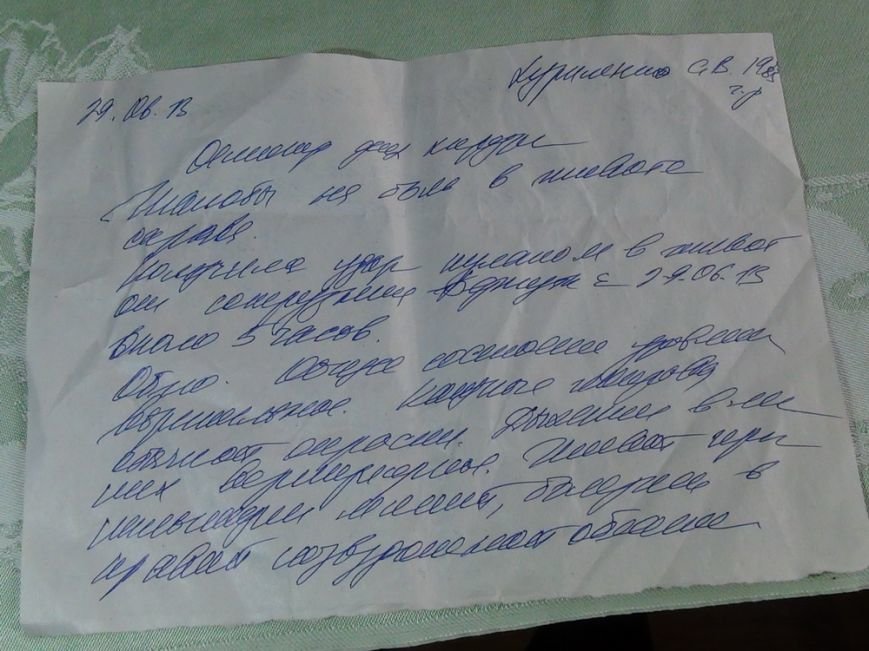 Куриленко С.В. 198
г.р
29.06.13
Осмотр
Жалобы на боли в животе
справа.
Получила удар кулаком в живот
от сокрушения с 29.06.13
около 5 часов.
Общее состояние удовлет
ворительное. Кожные покровы
обычной окраски. Дыхание в лег
ких везикулярное. Живот при
пальпации мягкий, болезнен в
правой подвздошной области